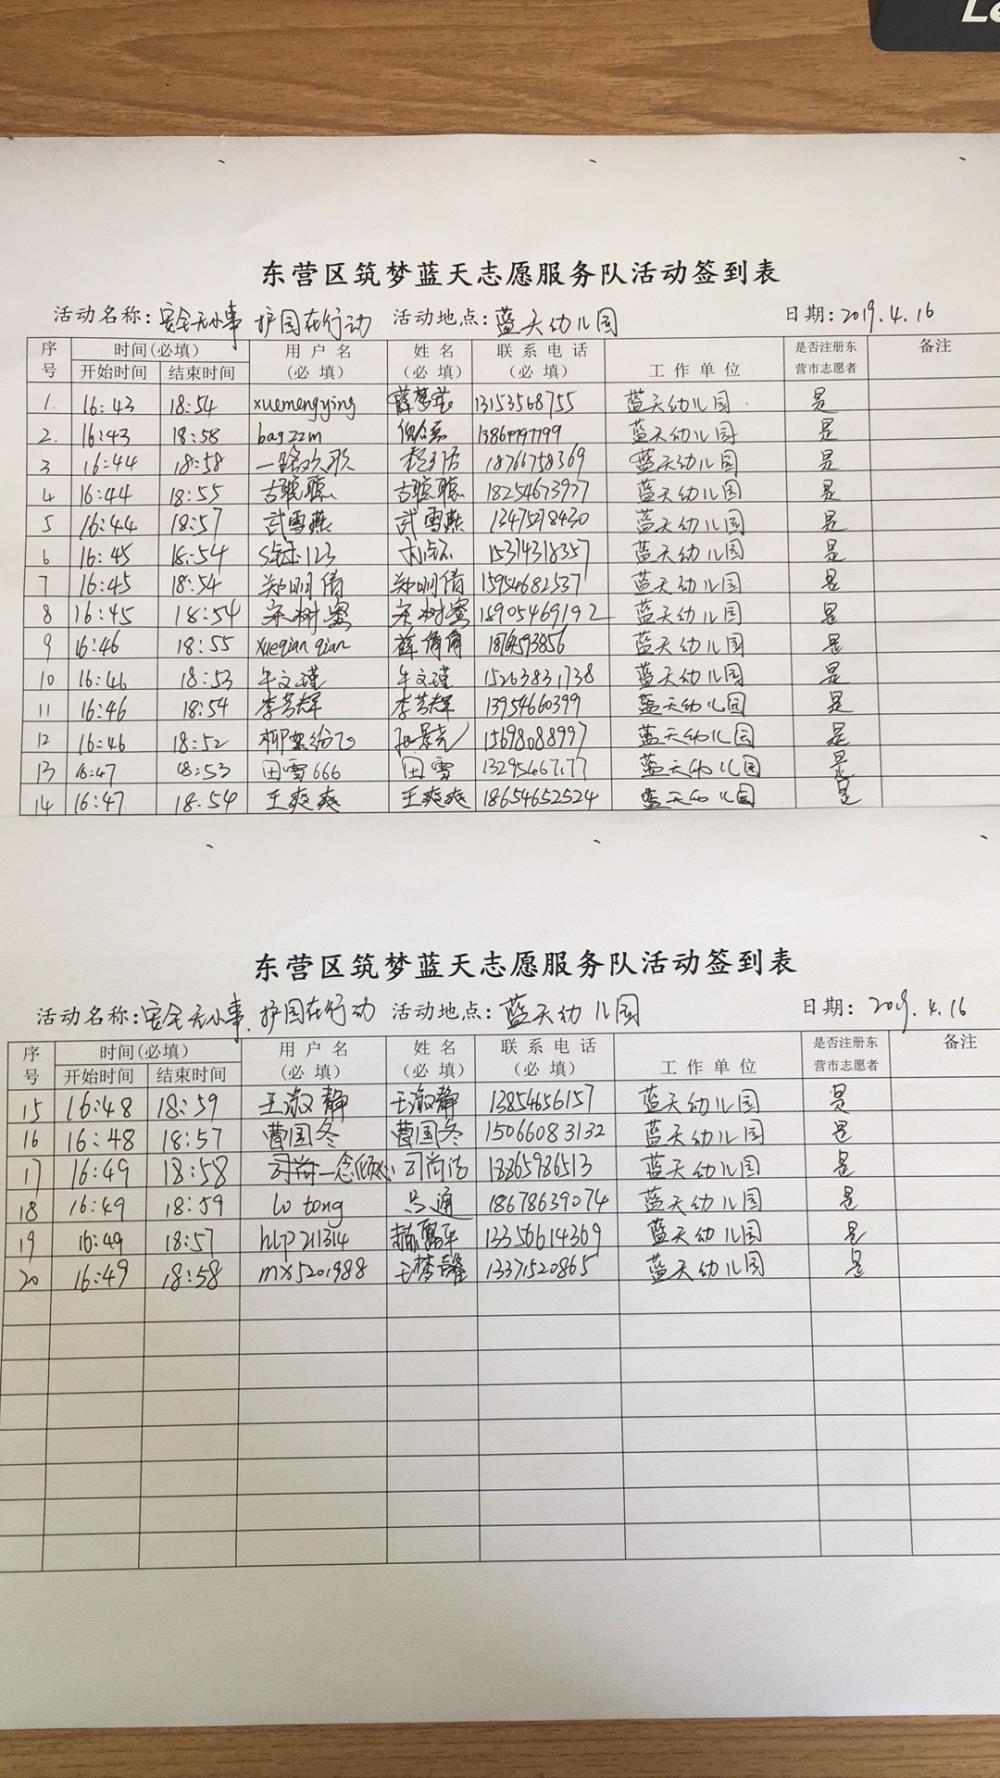 Le
东营区筑梦蓝天志愿服务队活动签到表
活动名称:安全无小事 护园在行动 活动地点:蓝天幼儿园 日期:2019.4.16
序号 时间(必填) 用户名(必填) 姓名(必填) 联系电话(必填) 工作单位 是否注册东营市志愿者 备注
开始时间 结束时间
1. 16:43 18:54 xuemengying 薛梦莹 13153568755 蓝天幼儿园 是
2. 16:43 18:58 bagzzm 蓝天幼儿园 是
3 16:44 18:58 一路欢歌 18766758369 蓝天幼儿园 是
4 16:44 18:55 古聪聪 古聪聪 18254673977 蓝天幼儿园 是
5 16:44 18:57 武雪燕 武雪燕 蓝天幼儿园 是
6 16:45 18:54 15314318357 蓝天幼儿园 是
7 16:45 18:54 郑明倩 郑明倩 15954682537 蓝天幼儿园 是
8 16:45 18:54 宋树蜜 宋树蜜 15905469192 蓝天幼儿园 是
9 16:46 18:55 xueqianqian 薛倩倩 蓝天幼儿园 是
10 16:46 18:53 牟文瑾 牟文瑾 15263831738 蓝天幼儿园 是
11 16:46 18:54 李芳辉 李芳辉 13954660399 蓝天幼儿园 是
12 16:46 18:52 15698088997 蓝天幼儿园 是
13 16:47 18:53 田雪666 田雪 蓝天幼儿园 是
14 16:47 18:54 王爽爽 王爽爽 18654652524 蓝天幼儿园 是
东营区筑梦蓝天志愿服务队活动签到表
活动名称:安全无小事.护园在行动 活动地点:蓝天幼儿园 日期: 2019.4.16
序号 时间(必填) 用户名(必填) 姓名(必填) 联系电话(必填) 工作单位 是否注册东营市志愿者 备注
开始时间 结束时间
15 16:48 18:59 王淑静 王淑静 13854656157 蓝天幼儿园 是
16 16:48 18:57 曹国冬 曹国冬 15066083132 蓝天幼儿园 是
17 16:49 18:58 蓝天幼儿园 是
18 16:49 18:59 lo tong 吕通 18678639074 蓝天幼儿园 是
19 16:49 18:57 hlp211314 13356614369 蓝天幼儿园 是
20 16:49 18:58 mx5201988 13371520865 蓝天幼儿园 是